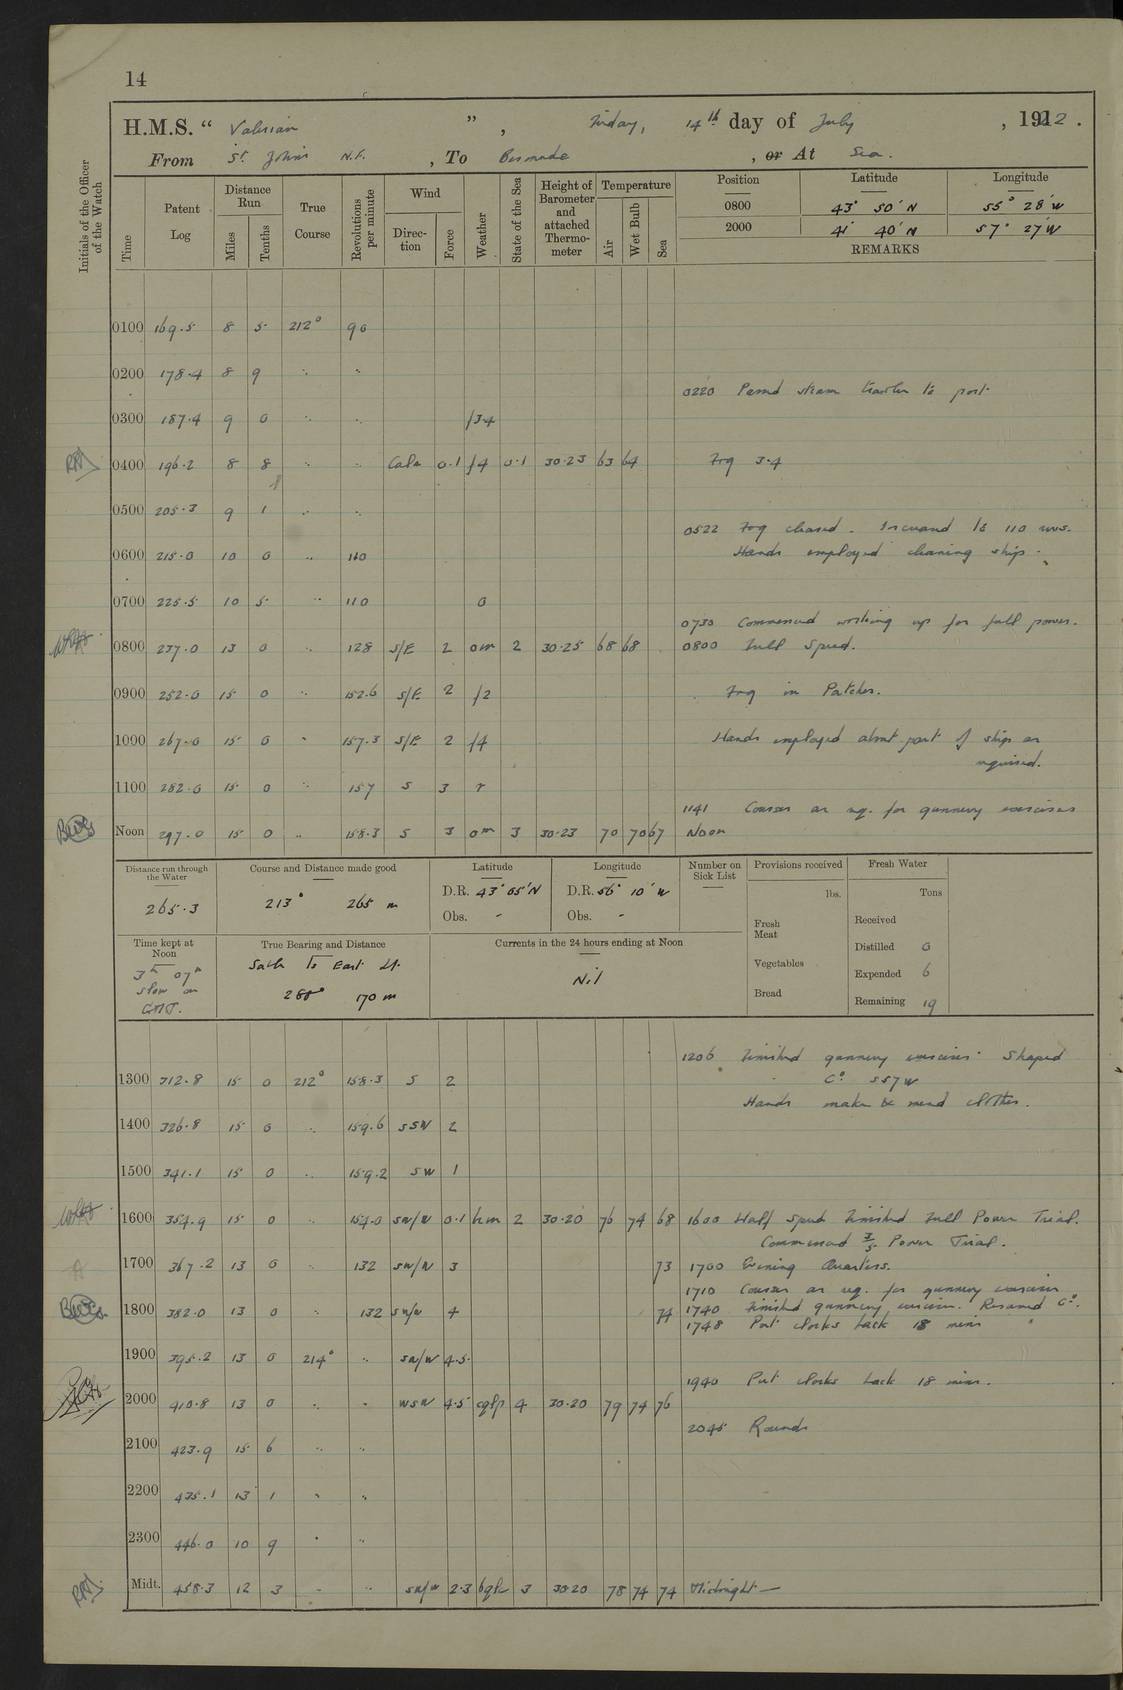 14
H.M.S. “ Valerian ” , Friday, 14th day of July , 1922 .
From St. Johns N.F. , To Bermuda , or At Sea.
Initials of the Officer of the Watch
Time
Patent Log
Distance Run
Miles
Tenths
True Course
Revolutions per minute
Wind
Direction
Force
Weather
State of the Sea
Height of Barometer and attached Thermometer
Temperature
Air
Wet Bulb
Sea
Position Latitude Longitude
0800 43° 50' N 55° 28' W
2000 41° 40' N 57° 27' W
REMARKS
0100 169.5 8 5 212° 90
0200 178.4 8 9 " "
0220 Passed steam trawler to port
0300 187.4 9 0 " " f34
0400 196.2 8 8 " " Calm 0.1 f4 0.1 30.23 63 64 Fog 3.4
0500 205.3 9 1 " "
0522 Fog cleared. Increased to 110 revs.
0600 215.0 10 0 " 110 Hands employed cleaning ship.
0700 225.5 10 5 " 110 0
0730 Commenced working up for full power.
0800 237.0 13 0 " 128 S/E 2 om 2 30.25 68 68 0800 Full Speed.
0900 252.0 15 0 " 152.6 S/E 2 f2 Fog in Patches.
1000 267.0 15 0 " 157.3 S/E 2 f4 Hands employed about part of ship as
required.
1100 282.0 15 0 " 157 S 3 r
1141 Courses as req. for gunnery exercises
Noon 297.0 15 0 " 158.3 S 3 om 3 30.23 70 70 67 Noon
Distance run through the Water
265.3
Course and Distance made good
213° 265 m
Latitude
D.R. 43° 05' N
Obs. -
Longitude
D.R. 56° 10' W
Obs. -
Number on Sick List
Provisions received
lbs.
Fresh Meat
Vegetables
Bread
Fresh Water
Tons
Received
Distilled 0
Expended 6
Remaining 19
Time kept at Noon
3h 07m
slow on
GMT.
True Bearing and Distance
Sable Is East Lt.
288° 170 m
Currents in the 24 hours ending at Noon
Nil
1206 Finished gunnery exercises. Shaped
1300 312.8 15 0 212° 158.3 S 2 Co. S57W
Hands make & mend clothes.
1400 326.8 15 0 " 159.6 SSW 2
1500 341.1 15 0 " 159.2 SW 1
1600 354.9 15 0 " 154.0 SW/W 0.1 bm 2 30.20 76 74 68 1600 Half Speed Finished Full Power Trial.
Commenced 3/5 Power Trial.
1700 367.2 13 0 " 132 SW/W 3 73 1700 Evening Quarters.
1710 Courses as req. for gunnery exercises
1800 382.0 13 0 " 132 SW/W 4 74 1740 Finished gunnery exercises. Resumed Co.
1748 Put clocks back 18 mins
1900 395.2 13 0 214° " SW/W 4.5
1940 Put clocks back 18 mins.
2000 410.8 13 0 " " WSW 4.5 cqlp 4 30.20 79 74 76
2045 Rounds
2100 423.9 15 6 " "
2200 435.1 13 1 " "
2300 446.0 10 9 " "
Midt. 458.3 12 3 " " SW/W 2.3 bql 3 30.20 78 74 74 Midnight —